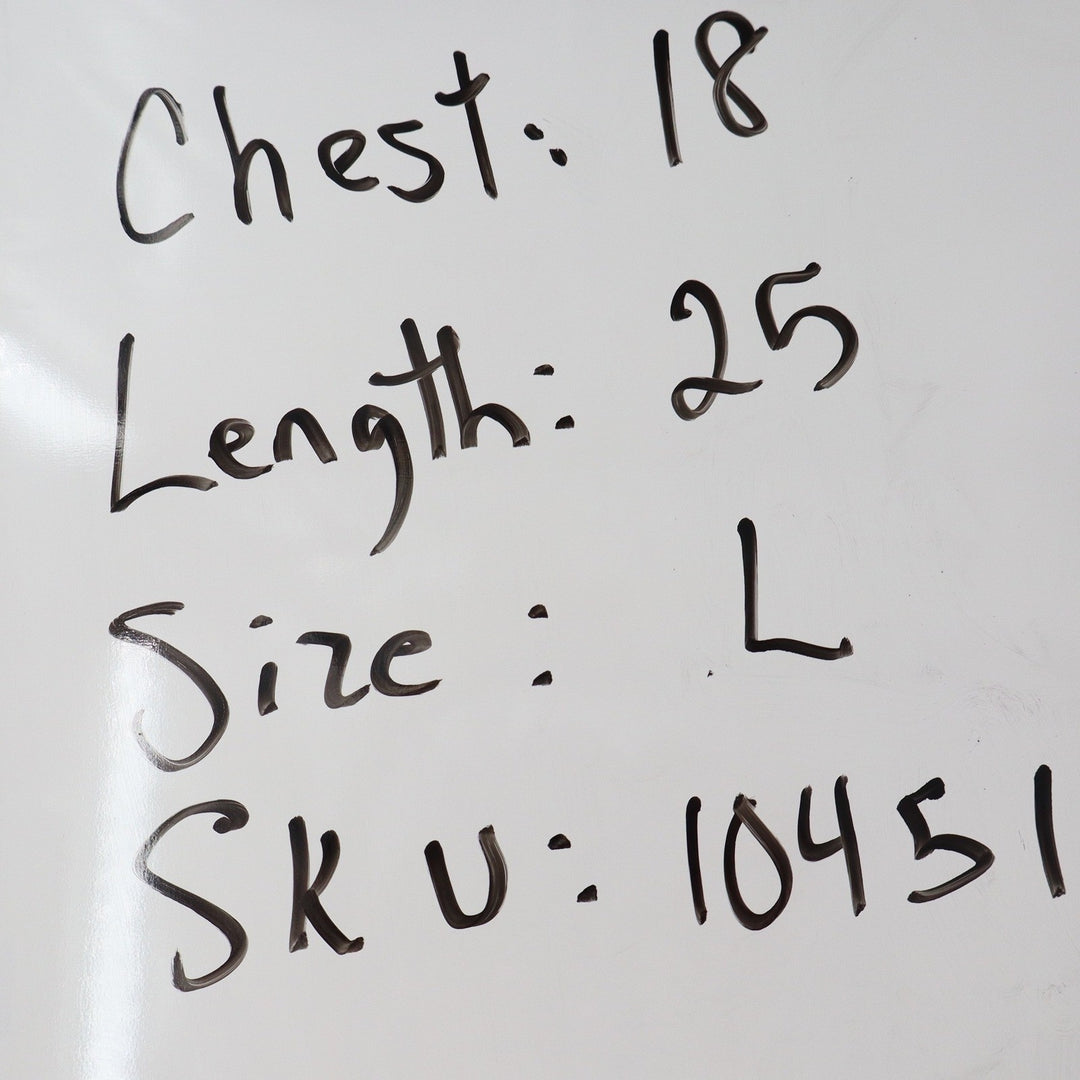 Chest: 18
Length: 25
Size: L
SKU: 10451